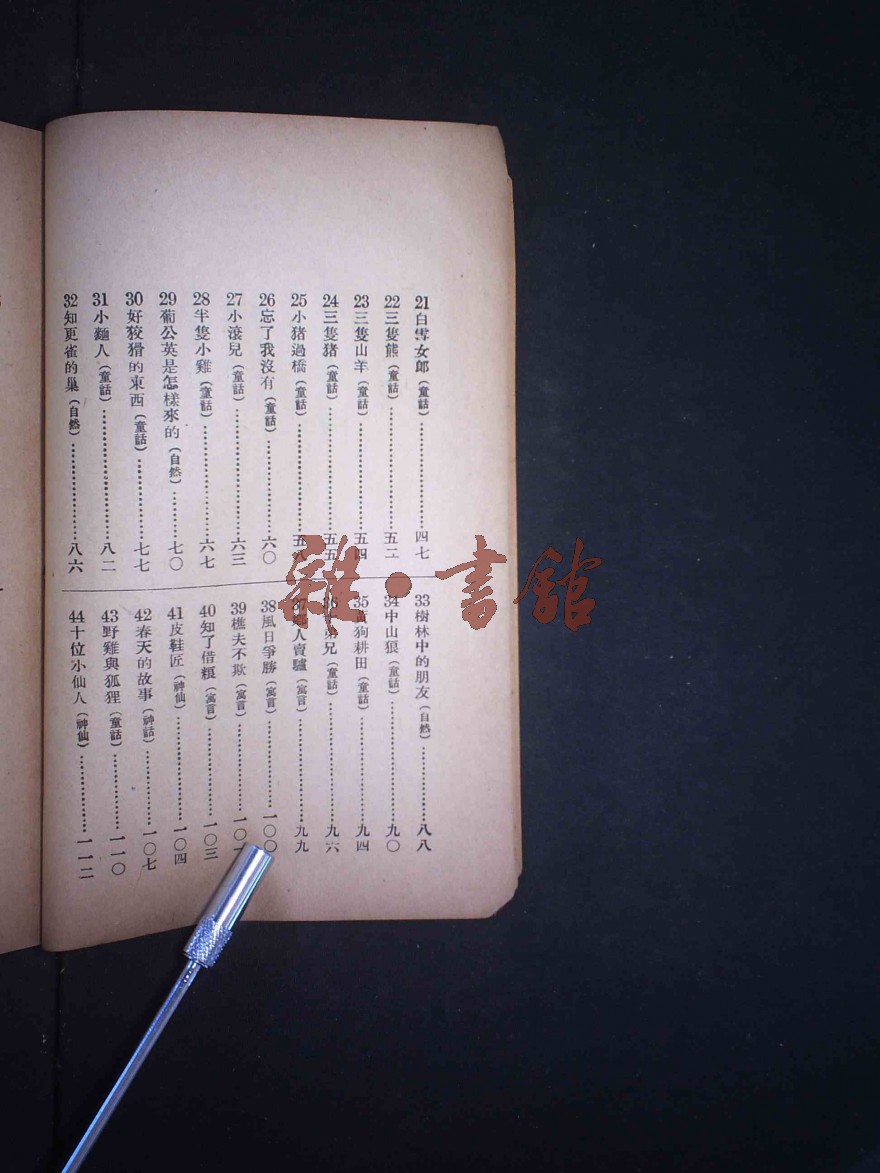 21白雪女郎(童話)……四七
22三隻熊(童話)……五二
23三隻山羊(童話)……五四
24三隻猪(童話)……五五
25小猪過橋(童話)……五八
26忘了我沒有(童話)……六〇
27小滾兒(童話)……六三
28半隻小雞(童話)……六七
29葡公英是怎樣來的(自然)……七〇
30好狡猾的東西(童話)……七七
31小麵人(童話)……八二
32知更雀的巢(自然)……八六
33樹林中的朋友(自然)……八八
34中山狼(童話)……九〇
35黃狗耕田(童話)……九四
36兄(童話)……九六
37人賣驢(寓言)……九九
38風日爭勝(寓言)……一〇〇
39樵夫不欺(寓言)……一〇
40知了借糧(寓言)……一〇三
41皮鞋匠(神仙)……一〇四
42春天的故事(神話)……一〇七
43野雞與狐狸(童話)……一一〇
44十位小仙人(神仙)……一一二
雜·書館